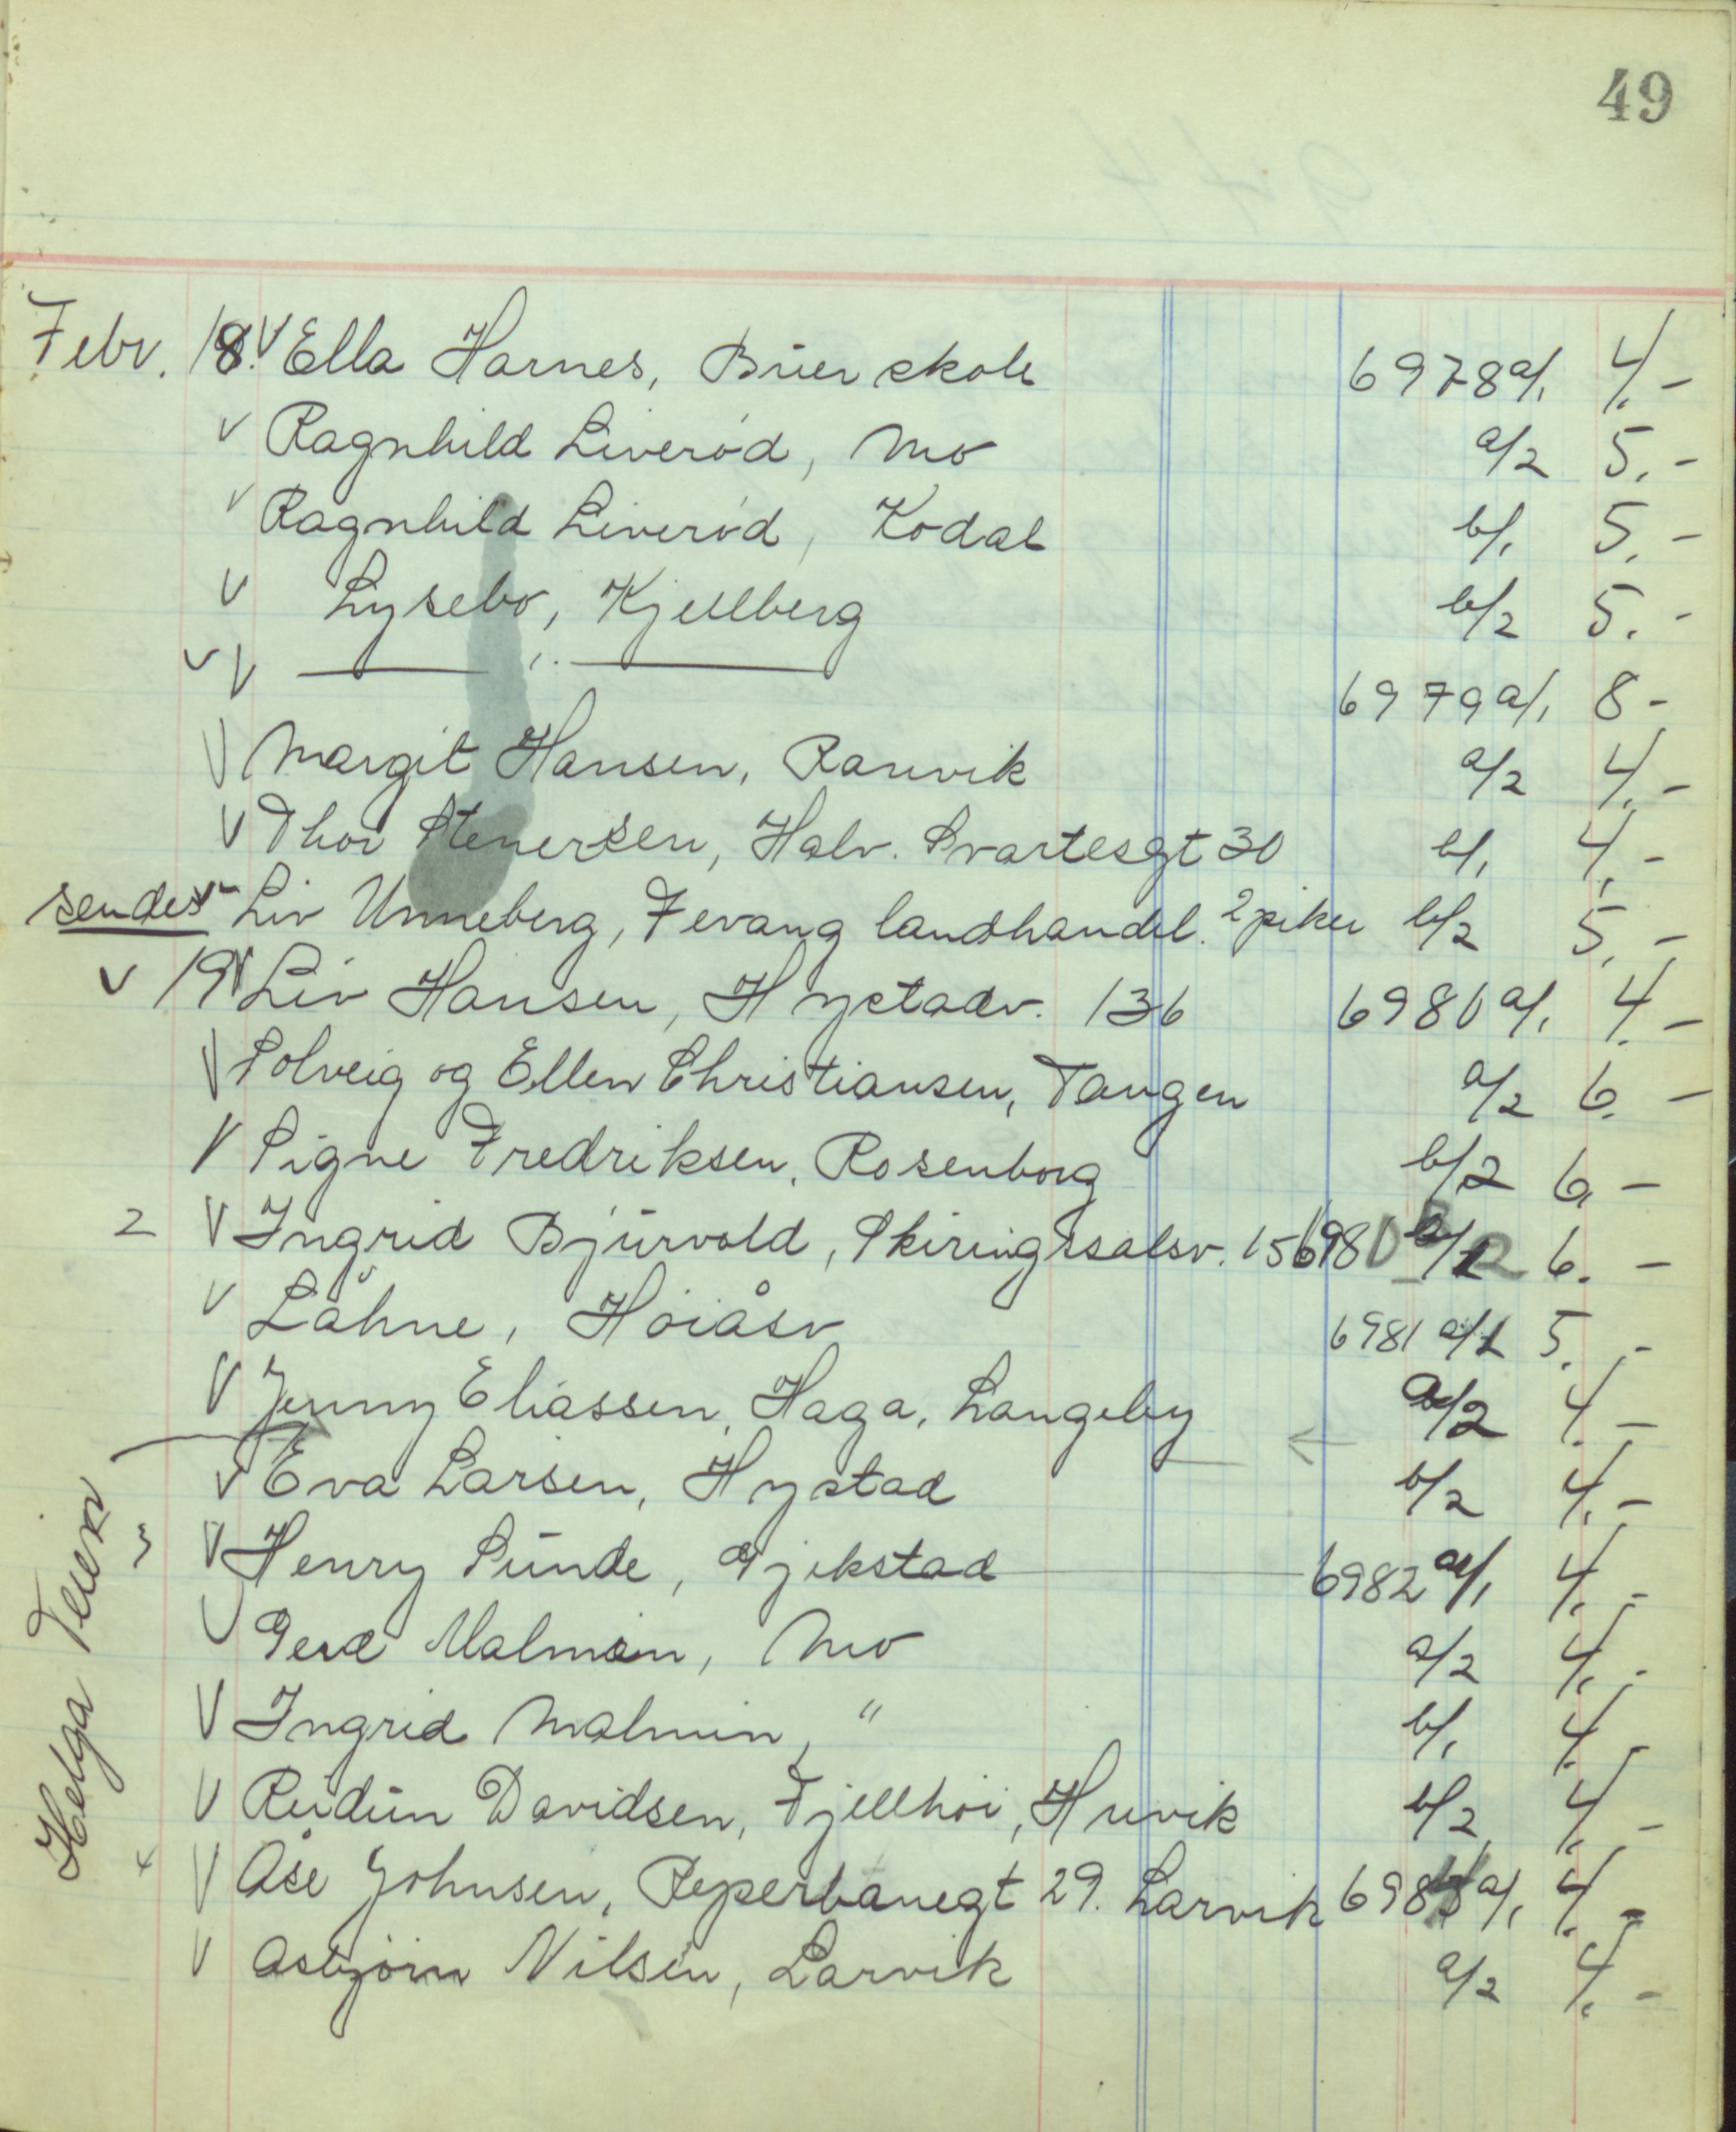 49
Febr. 18. V Ella Harnes, Buer skole 6978 a/1 4.-
V Ragnhild Liverød, Mo a/2 5.-
V Ragnhild Liverød, Kodal b/1 5.-
V Lysebo, Kjellberg b/2 5.-
V V —— " —— 6979 a/1 8-
V Margit Hansen, Ranvik a/2 4.-
V Thor Stenersen, Halv. Svartesgt 30 b/1 4.-
sendes V Liv Unneberg, Fevang landhandel. 2 piker b/2 5.-
V 19 V Liv Hansen, Hystadv. 136 6980 a/1 4.-
V Solveig og Ellen Christiansen, Tangen a/2 6.-
V Signe Fredriksen, Rosenborg b/2 6.-
2 V Ingrid Bjurvold, Skiringssalsv. 15 6980 b/2 6.-
V Låhne, Høiåsv 6981 a/1 5.-
V Jenny Eliassen, Haga, Langeby a/2 4.-
V Eva Larsen, Hystad b/2 4.-
3 V Henry Sunde, Gjekstad 6982 a/1 4.-
V Gerd Malmin, Mo a/2 4.-
V Ingrid Malmin, " b/1 4.-
V Reidun Davidsen, Fjellhøi, Huvik b/2 4.-
4 V Åse Johnsen, Reperbanegt 29. Larvik 698 a/1 4.-
V Asbjørn Nilsen, Larvik a/2 4.-
Helga